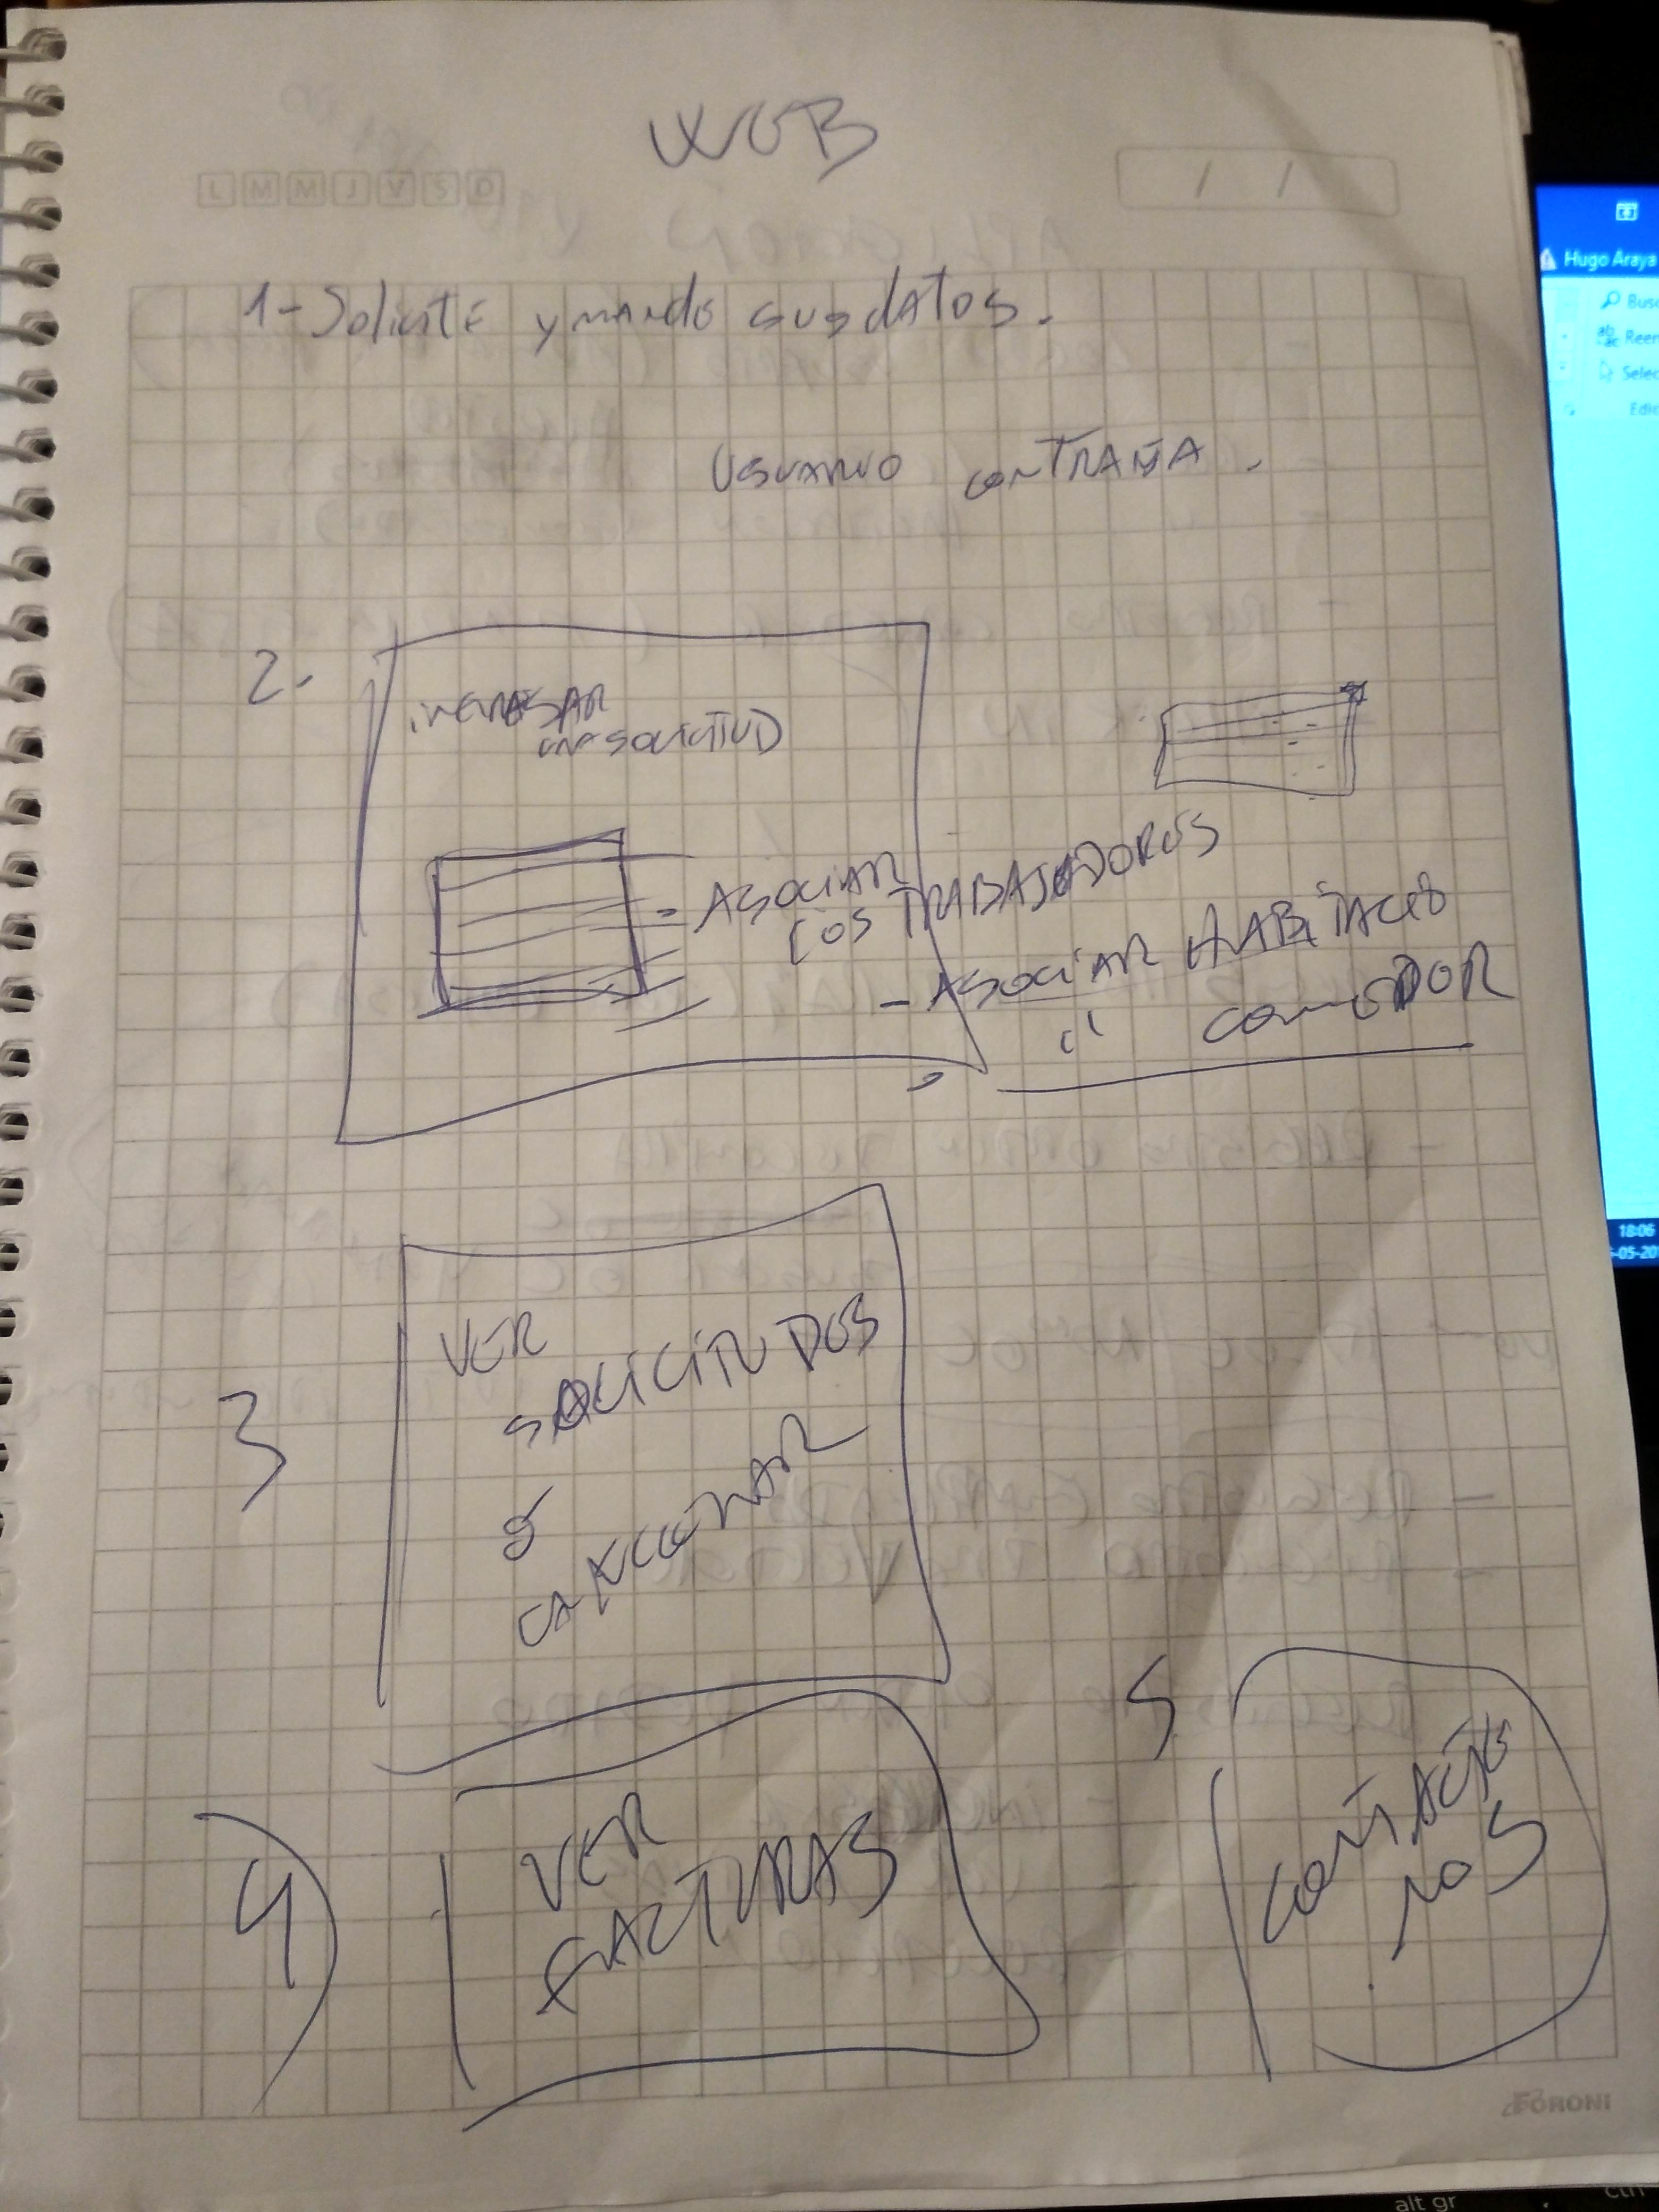 WEB
L M M J V S D
/ /
1- Solicite y mande sus datos.
USUARIO CONTRAÑA.
2.
INGRESAR
UNA SOLICITUD
- ASOCIAR
LOS TRABAJADORES
- ASOCIAR HABITACIO
" COMEDOR
3
VER
SOLICITUDES
Ó
CANCELAR
4)
VER
FACTURAS
5
CONTACTE
NOS
FORONI
Hugo Araya
Busc
Reem
Selec
Edic
18:06
-05-20
alt gr
ctrl